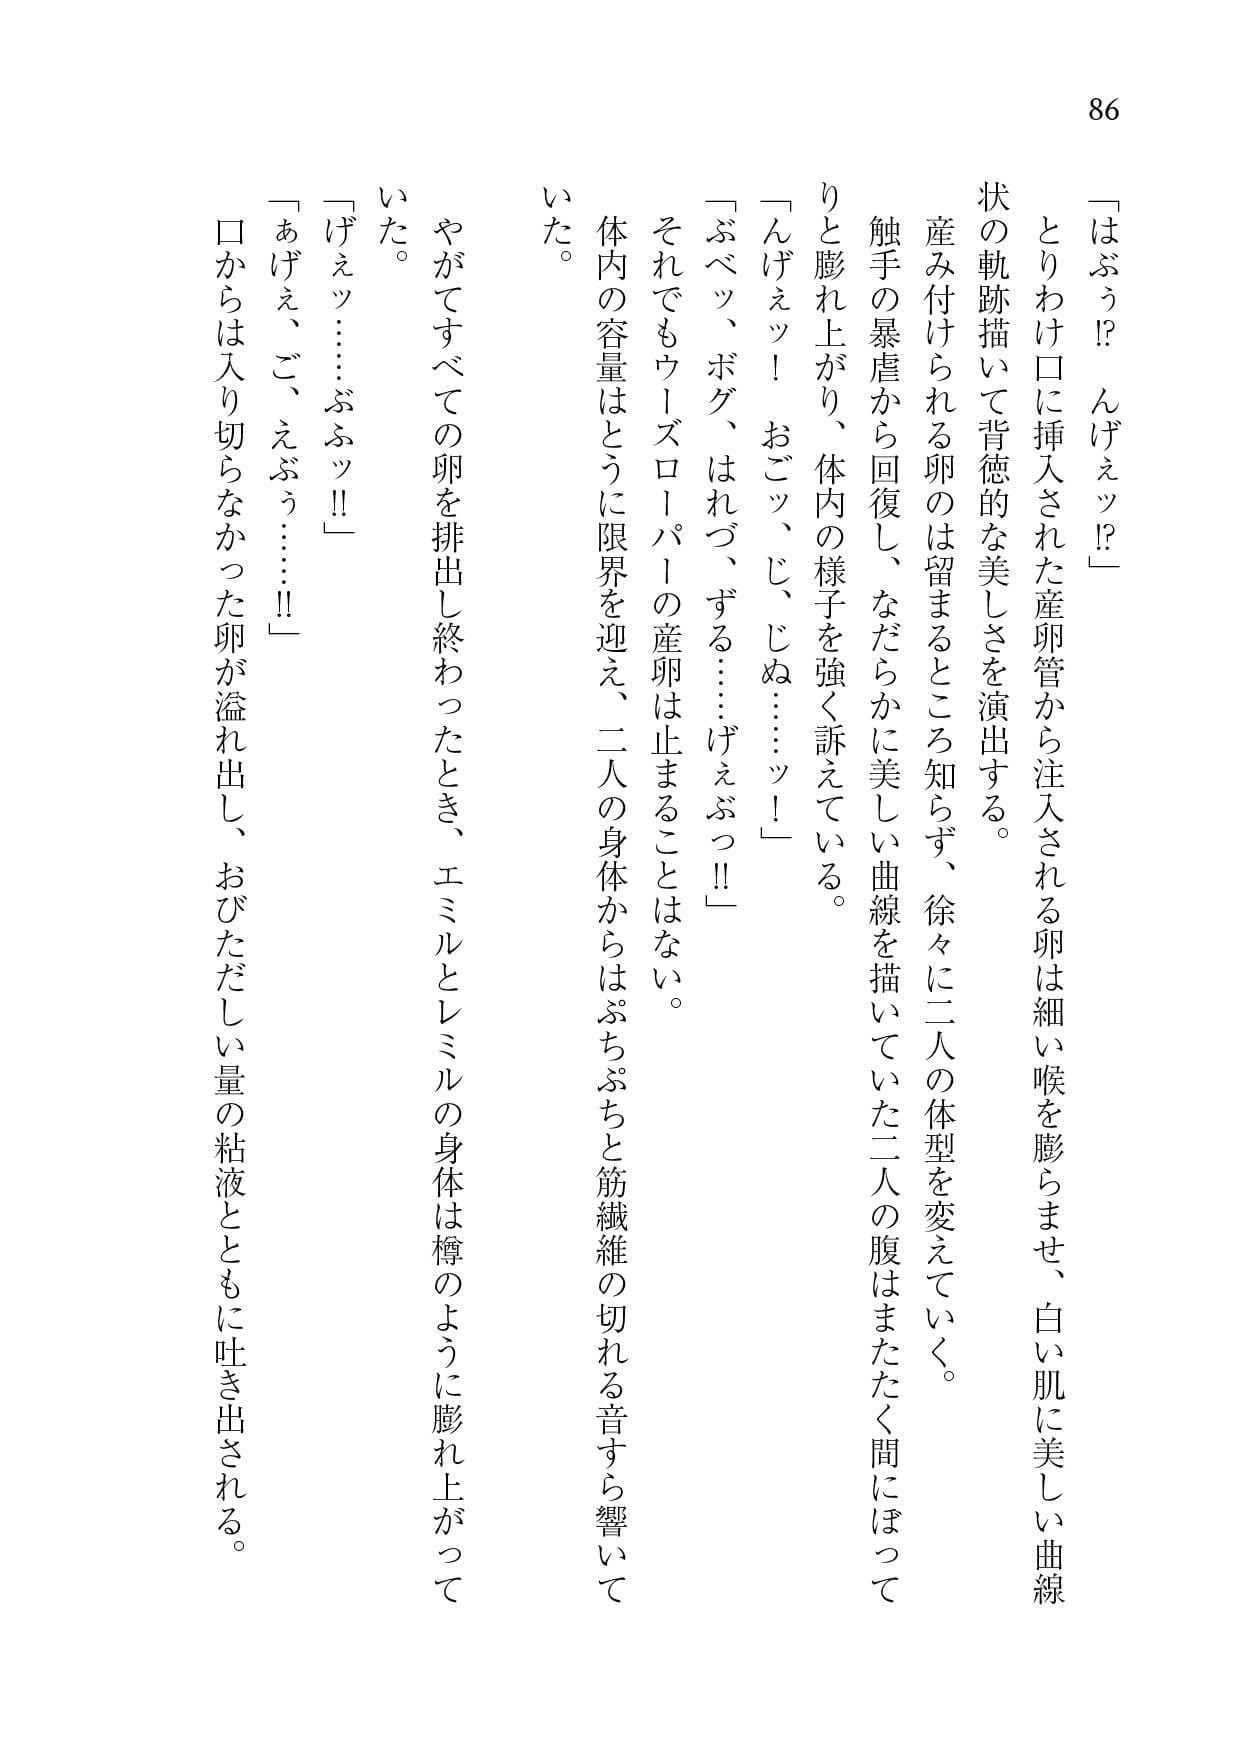 86
「はぶぅ⁉　んげぇッ⁉」
　とりわけ口に挿入された産卵管から注入される卵は細い喉を膨らませ、白い肌に美しい曲線
状の軌跡描いて背徳的な美しさを演出する。
　産み付けられる卵のは留まるところ知らず、徐々に二人の体型を変えていく。
　触手の暴虐から回復し、なだらかに美しい曲線を描いていた二人の腹はまたたく間にぽって
りと膨れ上がり、体内の様子を強く訴えている。
「んげぇッ！　おごッ、じ、じぬ……ッ！」
「ぶべッ、ボグ、はれづ、ずる……げぇぶっ‼」
　それでもウーズローパーの産卵は止まることはない。
　体内の容量はとうに限界を迎え、二人の身体からはぷちぷちと筋繊維の切れる音すら響いて
いた。
　やがてすべての卵を排出し終わったとき、エミルとレミルの身体は樽のように膨れ上がって
いた。
「げぇッ……ぶふッ‼」
「あげぇ、ご、えぶぅ……‼」
　口からは入り切らなかった卵が溢れ出し、おびただしい量の粘液とともに吐き出される。